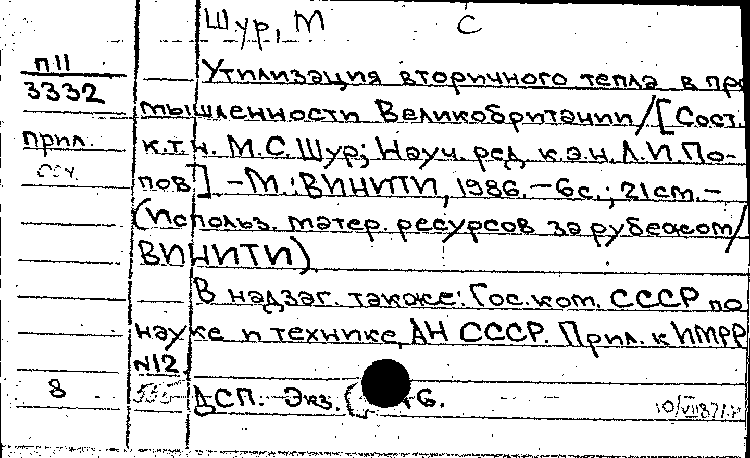 Шур, М С
П11 Утилизация вторичного тепла в про
3332 мышленности Великобритании/[Сост.
прил. к.т.н. М.С.Шур; Науч. ред. к.э.н. Л.И.По-
пов]. –М.:ВИНИТИ, 1986.–6с.; 21см.–
(Использ. матер. ресурсов за рубежом/
ВИНИТИ)
В надзаг. также: Гос.ком. СССР по
науке и технике, АН СССР. Прил. к ИМРР
N12.
8 ДСП. Экз. 6.